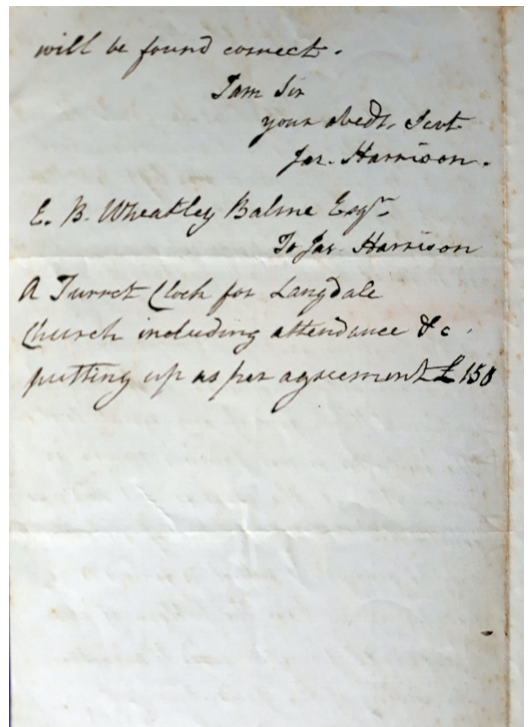 will be found correct.
I am Sir
your obedt. Servt
Jas. Harrison.
E. B. Wheatley Balme Esqr.
To Jas. Harrison
A Turret Clock for Langdale
Church including attendance &c.
putting up as per agreement £150